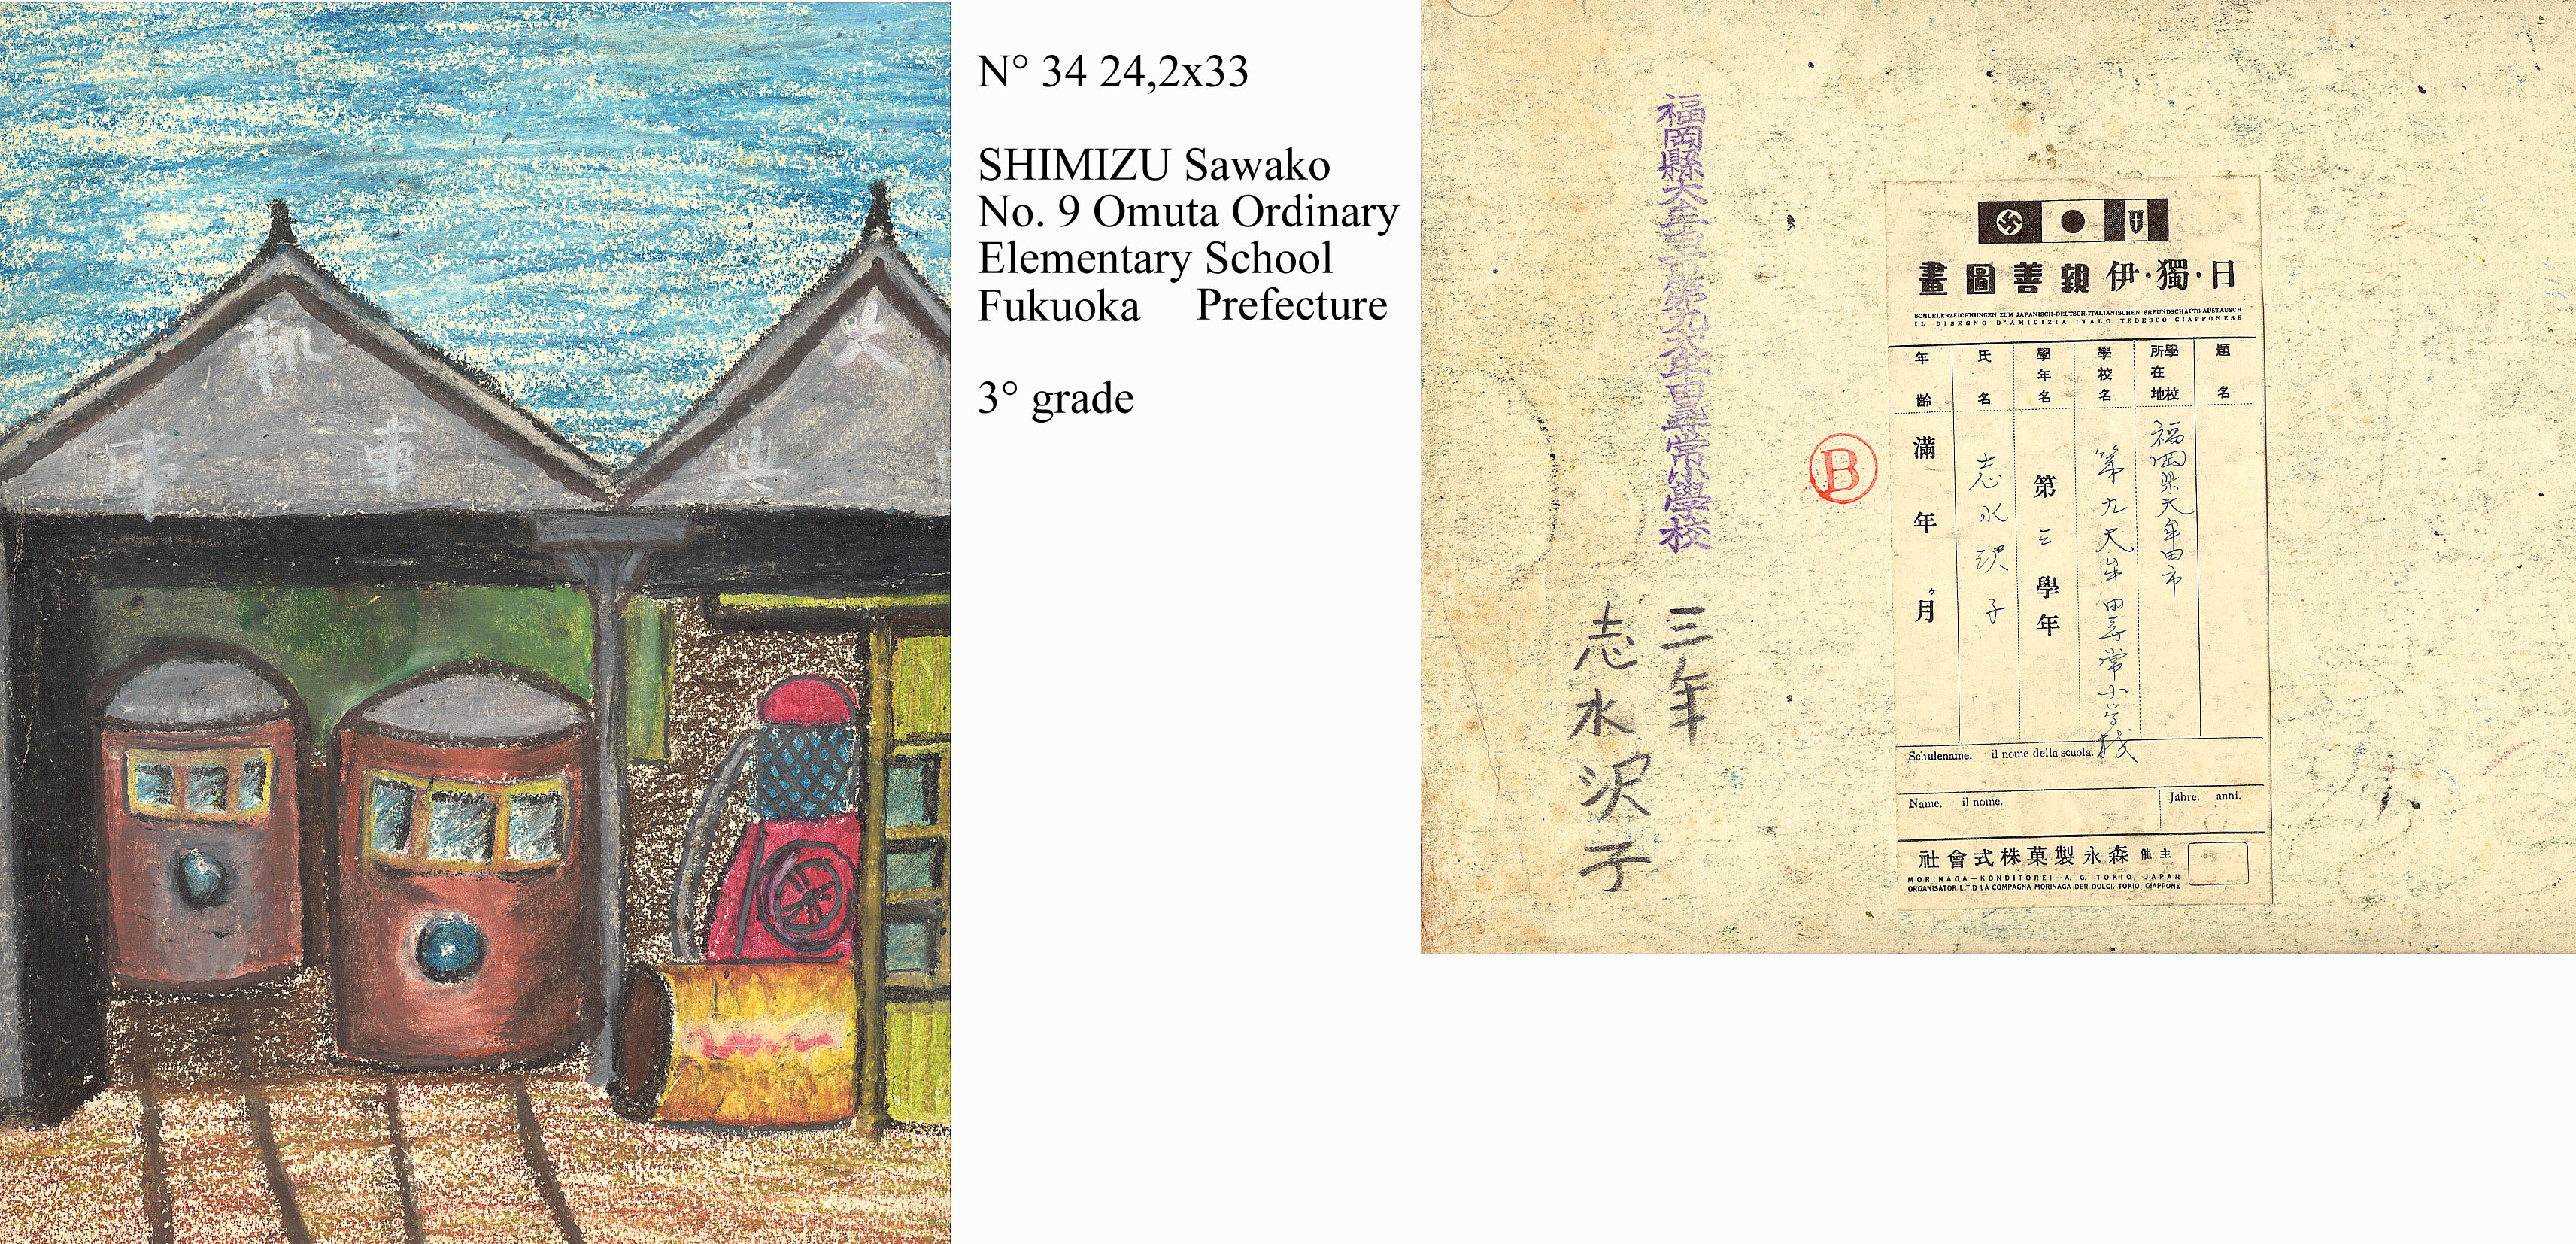 軌
車
庫
大
共
N° 34 24,2x33
SHIMIZU Sawako
No. 9 Omuta Ordinary
Elementary School
Fukuoka Prefecture
3° grade
福岡縣大牟田市第九大牟田尋常小學校
三年
志水沢子
B
日·獨·伊親善圖畫
SCHUELERZEICHNUNGEN ZUM JAPANISCH-DEUTSCH-ITALIANISCHEN FREUNDSCHAFTS-AUSTAUSCH
IL DISEGNO D'AMICIZIA ITALO TEDESCO GIAPPONESE
題名
學校所在地
福岡県大牟田市
學校名
第九大牟田尋常小学校
學年名
第三學年
氏名
志水沢子
年齡
滿年ヶ月
Schulename. il nome della scuola.
Name. il nome.
Jahre. anni.
主催 森永製菓株式會社
MORINAGA—KONDITOREI—A. G. TOKIO, JAPAN
ORGANISATOR L.T.D LA COMPAGNA MORINAGA DER DOLCI, TOKIO, GIAPPONE